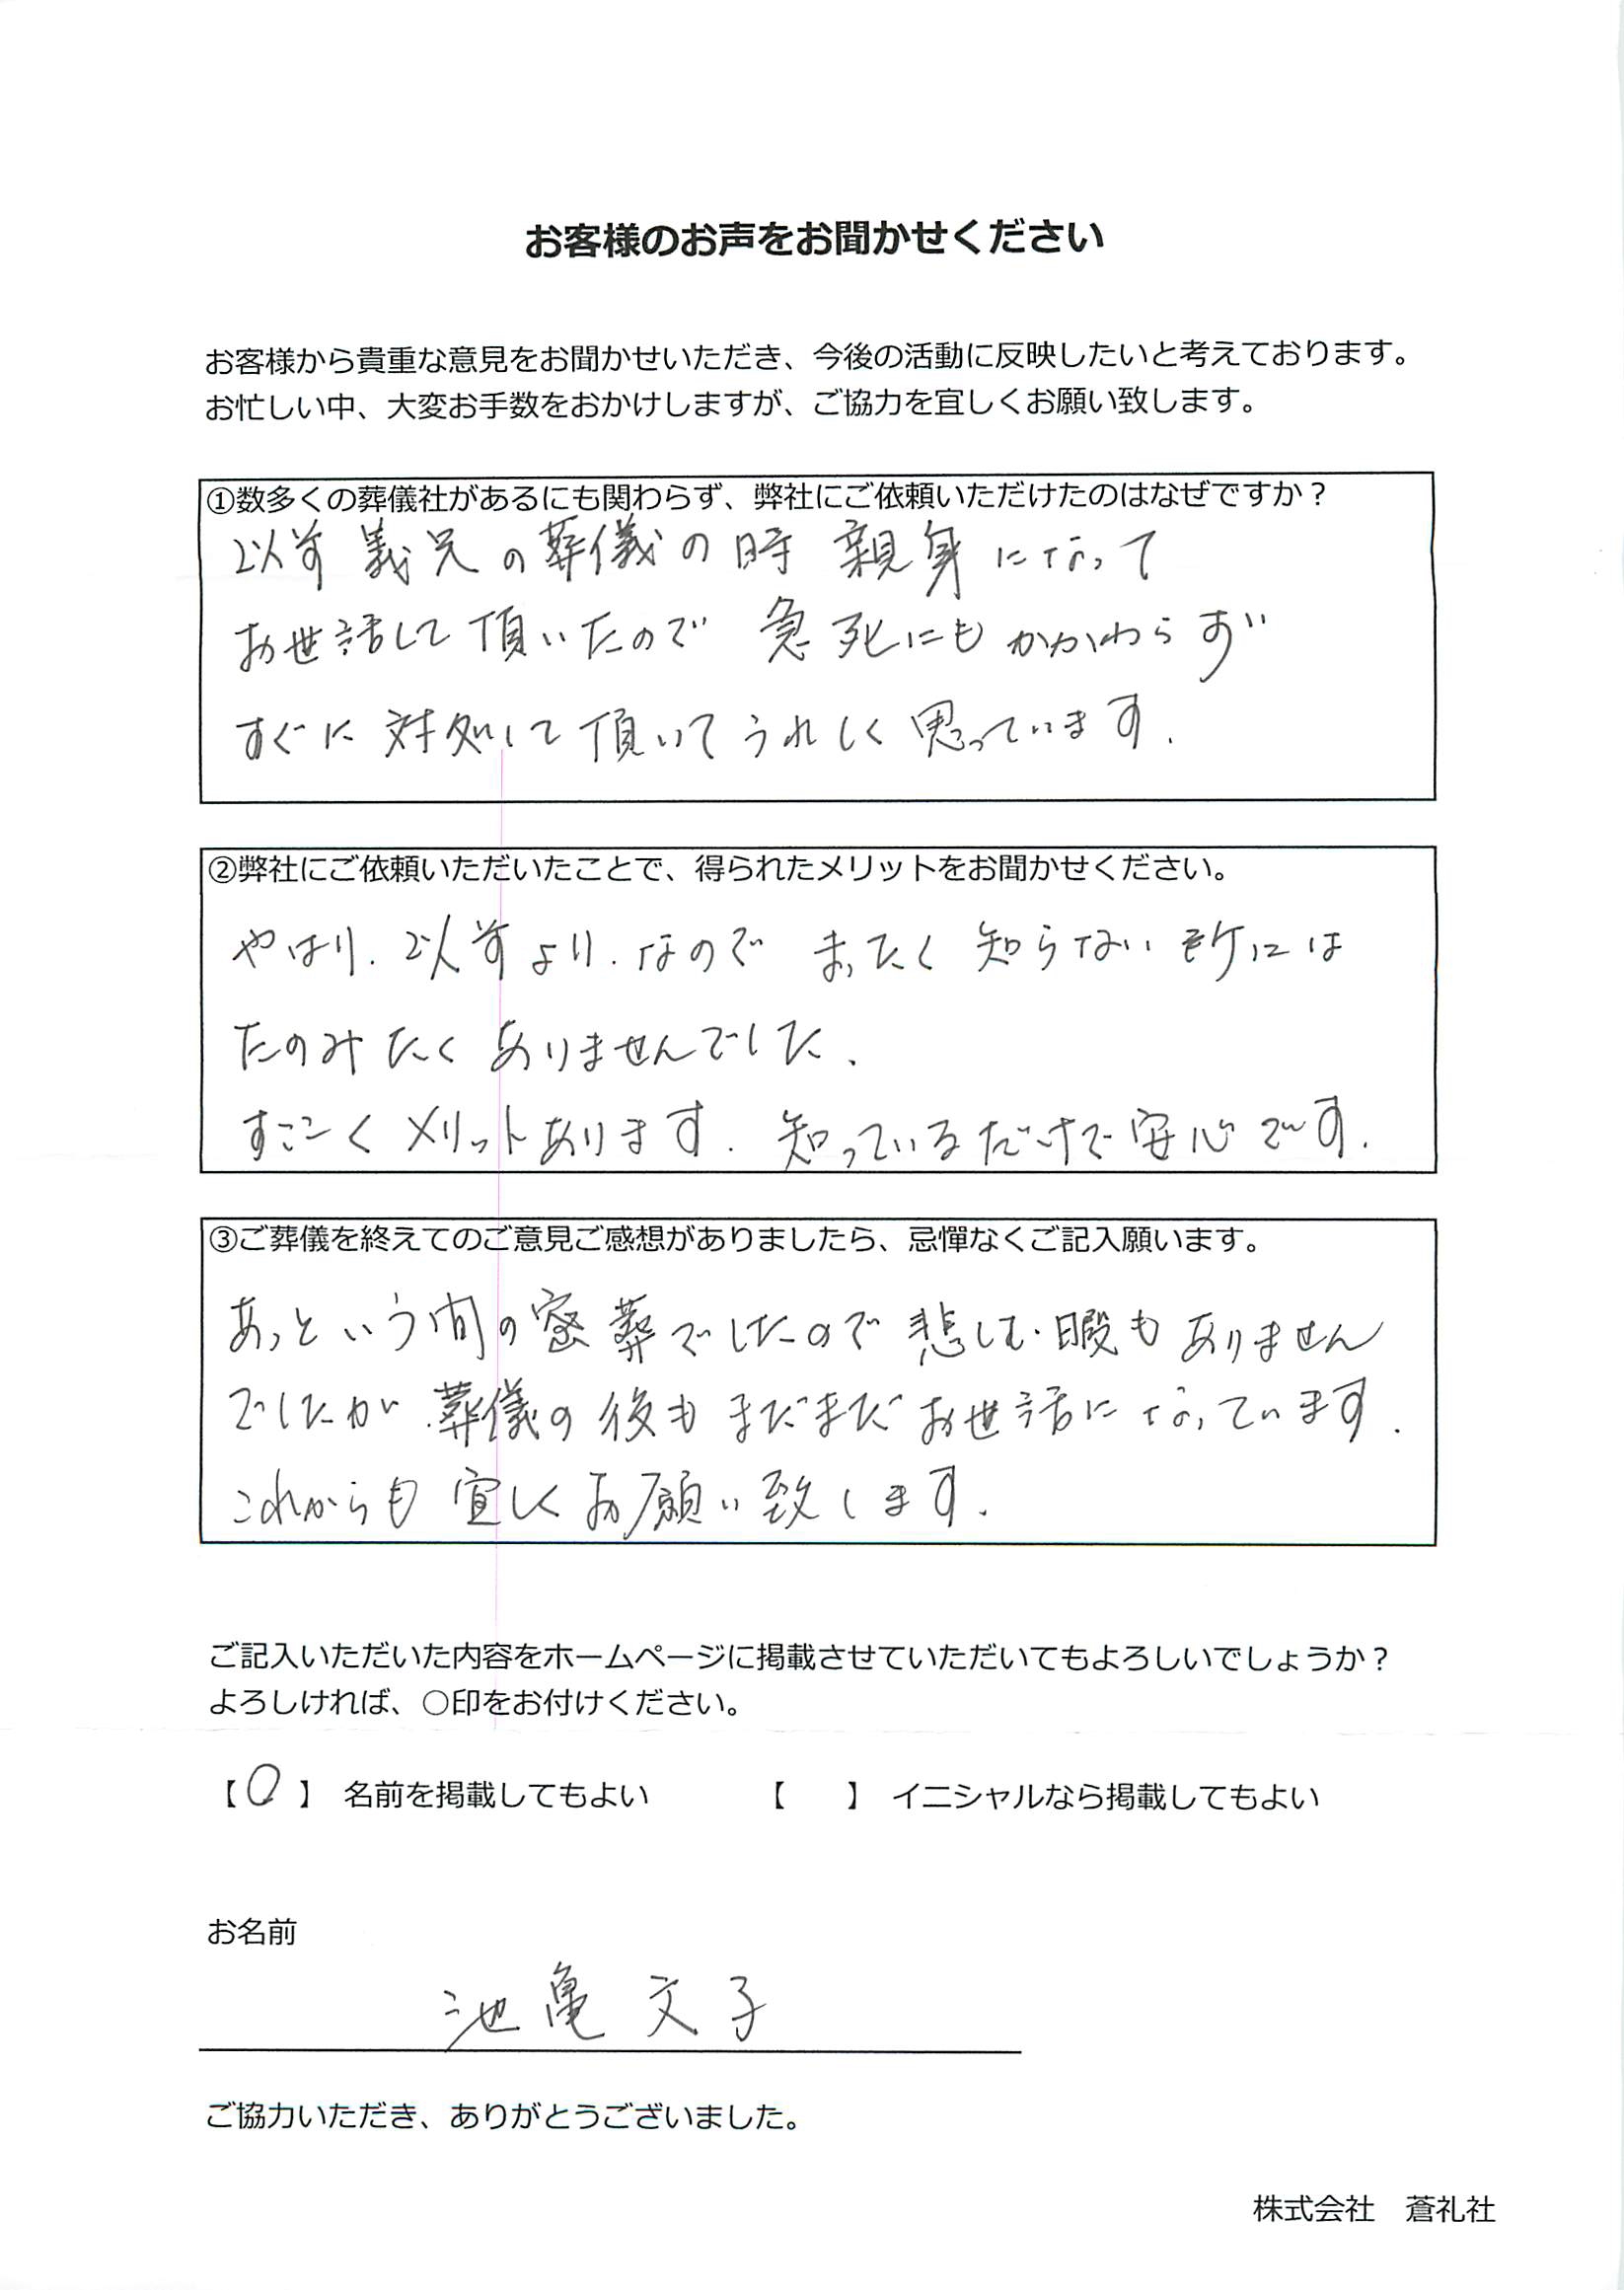 お客様のお声をお聞かせください
お客様から貴重な意見をお聞かせいただき、今後の活動に反映したいと考えております。
お忙しい中、大変お手数をおかけしますが、ご協力を宜しくお願い致します。
①数多くの葬儀社があるにも関わらず、弊社にご依頼いただけたのはなぜですか？
以前 義兄の葬儀の時 親身になって
お世話して頂いたので 急死にもかかわらず
すぐに対処して頂いてうれしく思っています.
②弊社にご依頼いただいたことで、得られたメリットをお聞かせください。
やはり. 以前より. なので まったく知らない所には
たのみたくありませんでした.
すごくメリットあります. 知っているだけで安心です.
③ご葬儀を終えてのご意見ご感想がありましたら、忌憚なくご記入願います。
あっという間の密葬でしたので悲しむ暇もありません
でしたが.葬儀の後もまだまだお世話になっています.
これからも宜しくお願い致します.
ご記入いただいた内容をホームページに掲載させていただいてもよろしいでしょうか？
よろしければ、○印をお付けください。
【○】 名前を掲載してもよい 【 】 イニシャルなら掲載してもよい
お名前
池亀 文子
ご協力いただき、ありがとうございました。
株式会社 蒼礼社